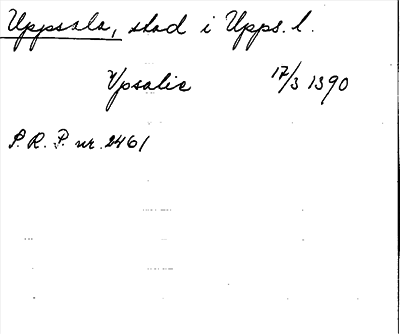 Uppsala, stad i Upps. l.
Vpsalie 17/3 1390
S. R. P. nr. 2461